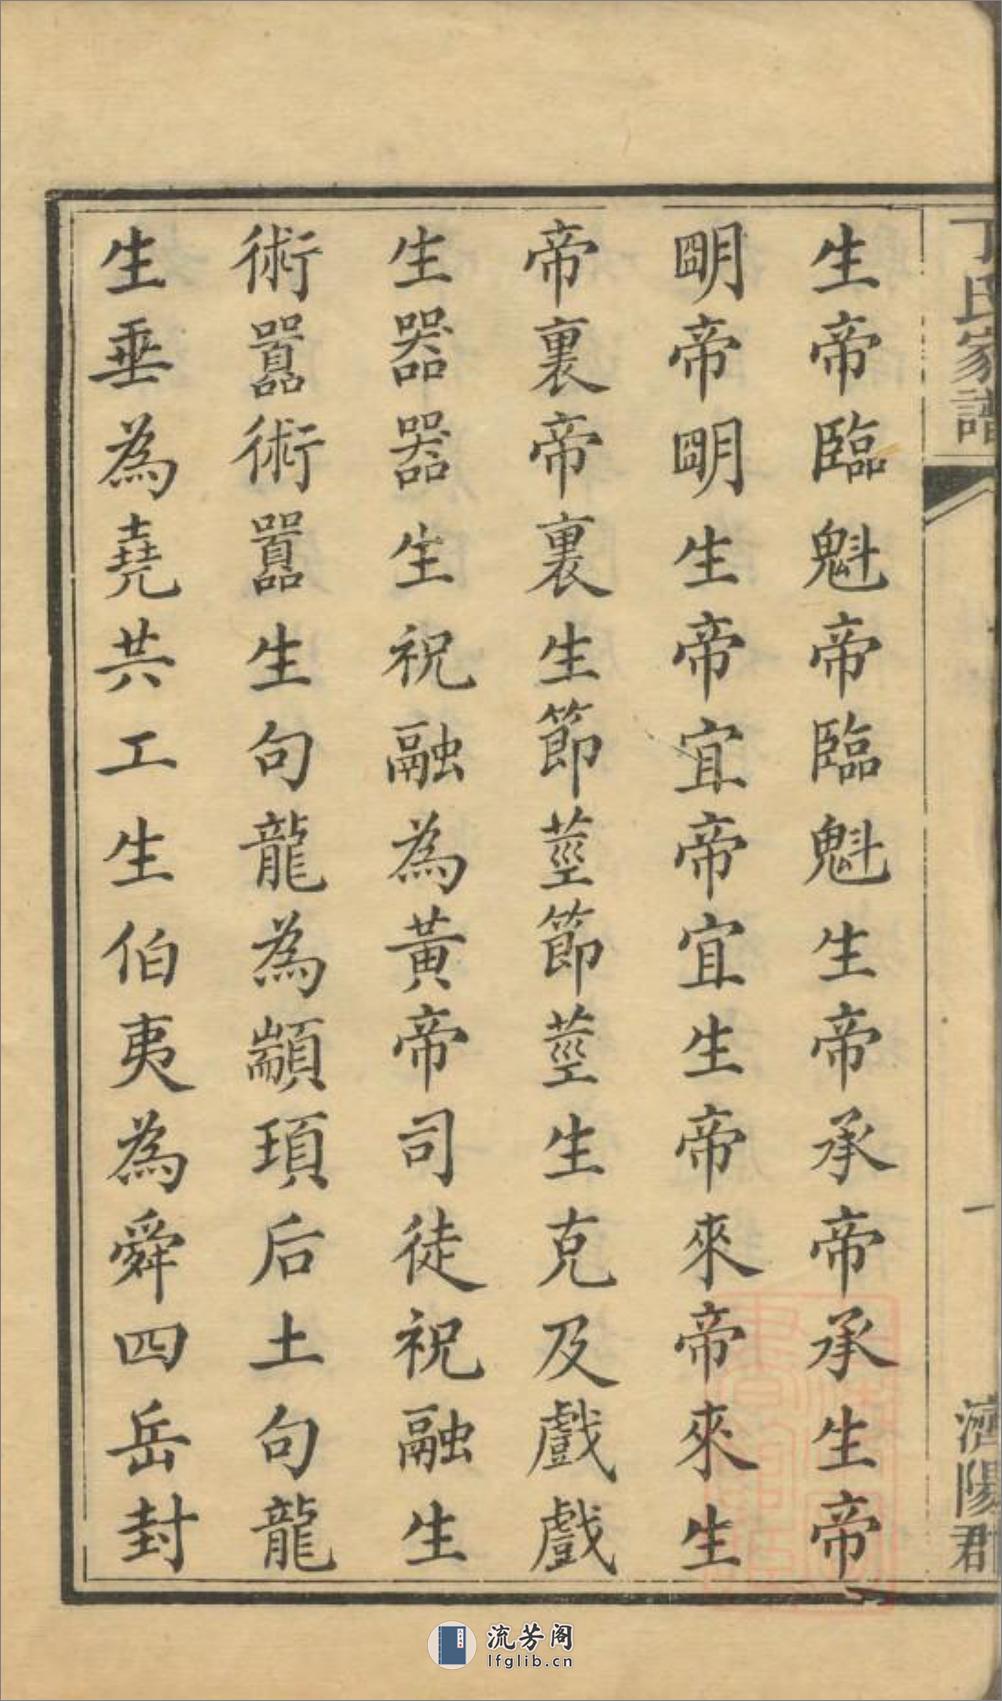 丁氏家譜
一
濟陽郡
生帝臨魁帝臨魁生帝承帝承生帝
朙帝朙生帝宜帝宜生帝來帝來生
帝裏帝裏生節莖節莖生克及戲戲
生器器生祝融為黃帝司徒祝融生
術嚻術嚻生句龍為顓頊后土句龍
生垂為堯共工生伯夷為舜四岳封
流芳阁
lfglib.cn